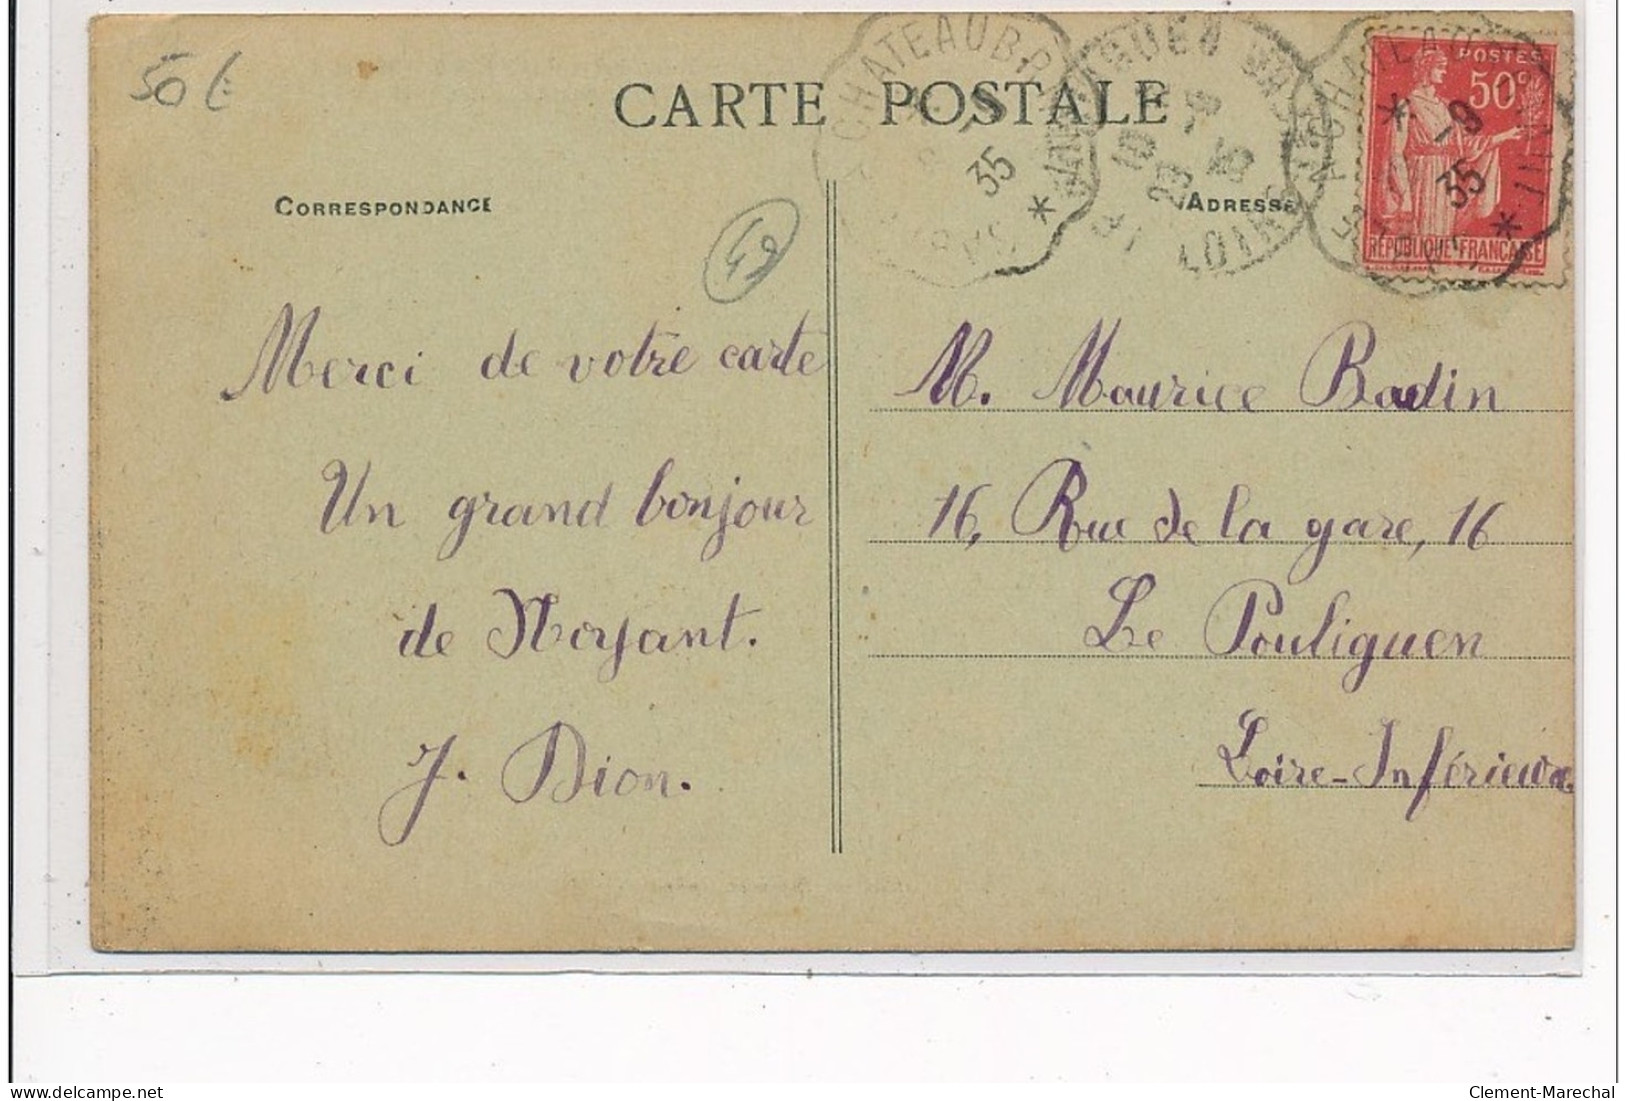 50 €
CARTE POSTALE
CORRESPONDANCE
ADRESSE
CHATEAUBR
35
LOIRE
POSTES
50c
35
RÉPUBLIQUE FRANÇAISE
Merci de votre carte
Un grand bonjour
de Noyant.
J. Dion.
M. Maurice Badin
16, Rue de la gare, 16
Le Pouliguen
Loire-Inférieure
Clement-Marechal